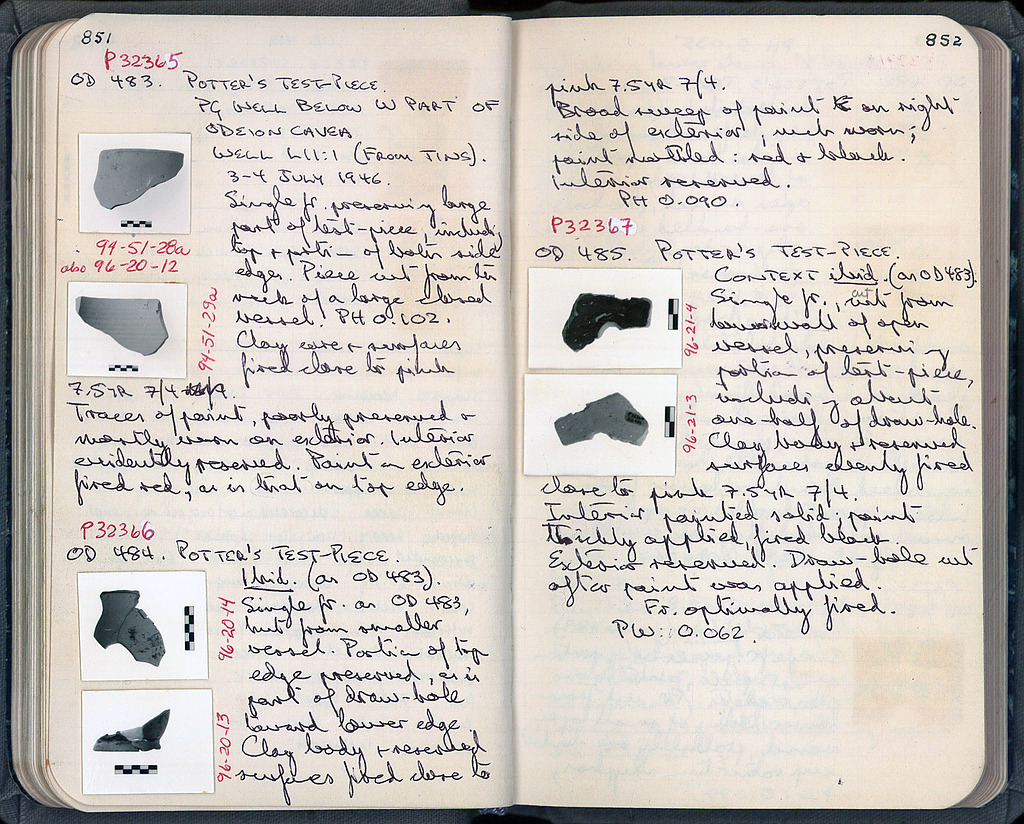 851
P32365
OD 483. POTTER'S TEST-PIECE.
PG WELL BELOW W PART OF
ODEION CAVEA
WELL L11:1 (FROM TINS).
3-4 JULY 1946.
Single fr. preserving large
part of test-piece, includ,
top & portion of both side
edges. Piece cut from the
neck of a large closed
vessel. PH 0.102.
Clay core & surfaces
fired close to pink
7.5YR 7/4.
Traces of paint, poorly preserved &
mostly worn on exterior. Interior
evidently reserved. Paint on exterior
fired red, as is that on top edge.
94-51-28a
also 96-20-12
94-51-29a
P32366
OD 484. POTTER'S TEST-PIECE.
Ibid. (as OD 483).
Single fr. as OD 483,
but from smaller
vessel. Portion of top
edge preserved, as is
part of draw-hole
toward lower edge.
Clay body & reserved
surfaces fired close to
96-20-14
96-20-13
852
pink 7.5YR 7/4.
Broad sweep of paint on right
side of exterior, much worn;
paint mottled: red & black.
Interior reserved.
PH 0.090.
P32367
OD 485. POTTER'S TEST-PIECE.
CONTEXT ibid. (as OD 483).
Single fr., cut from
lower wall of open
vessel, preserving
portion of test-piece,
including about
one-half of draw-hole.
Clay body & reserved
surfaces evenly fired
close to pink 7.5YR 7/4.
Interior painted solid; paint
thickly applied fired black.
Exterior reserved. Draw-hole cut
after paint was applied.
Fr. optimally fired.
PW: 0.062.
96-21-4
96-21-3